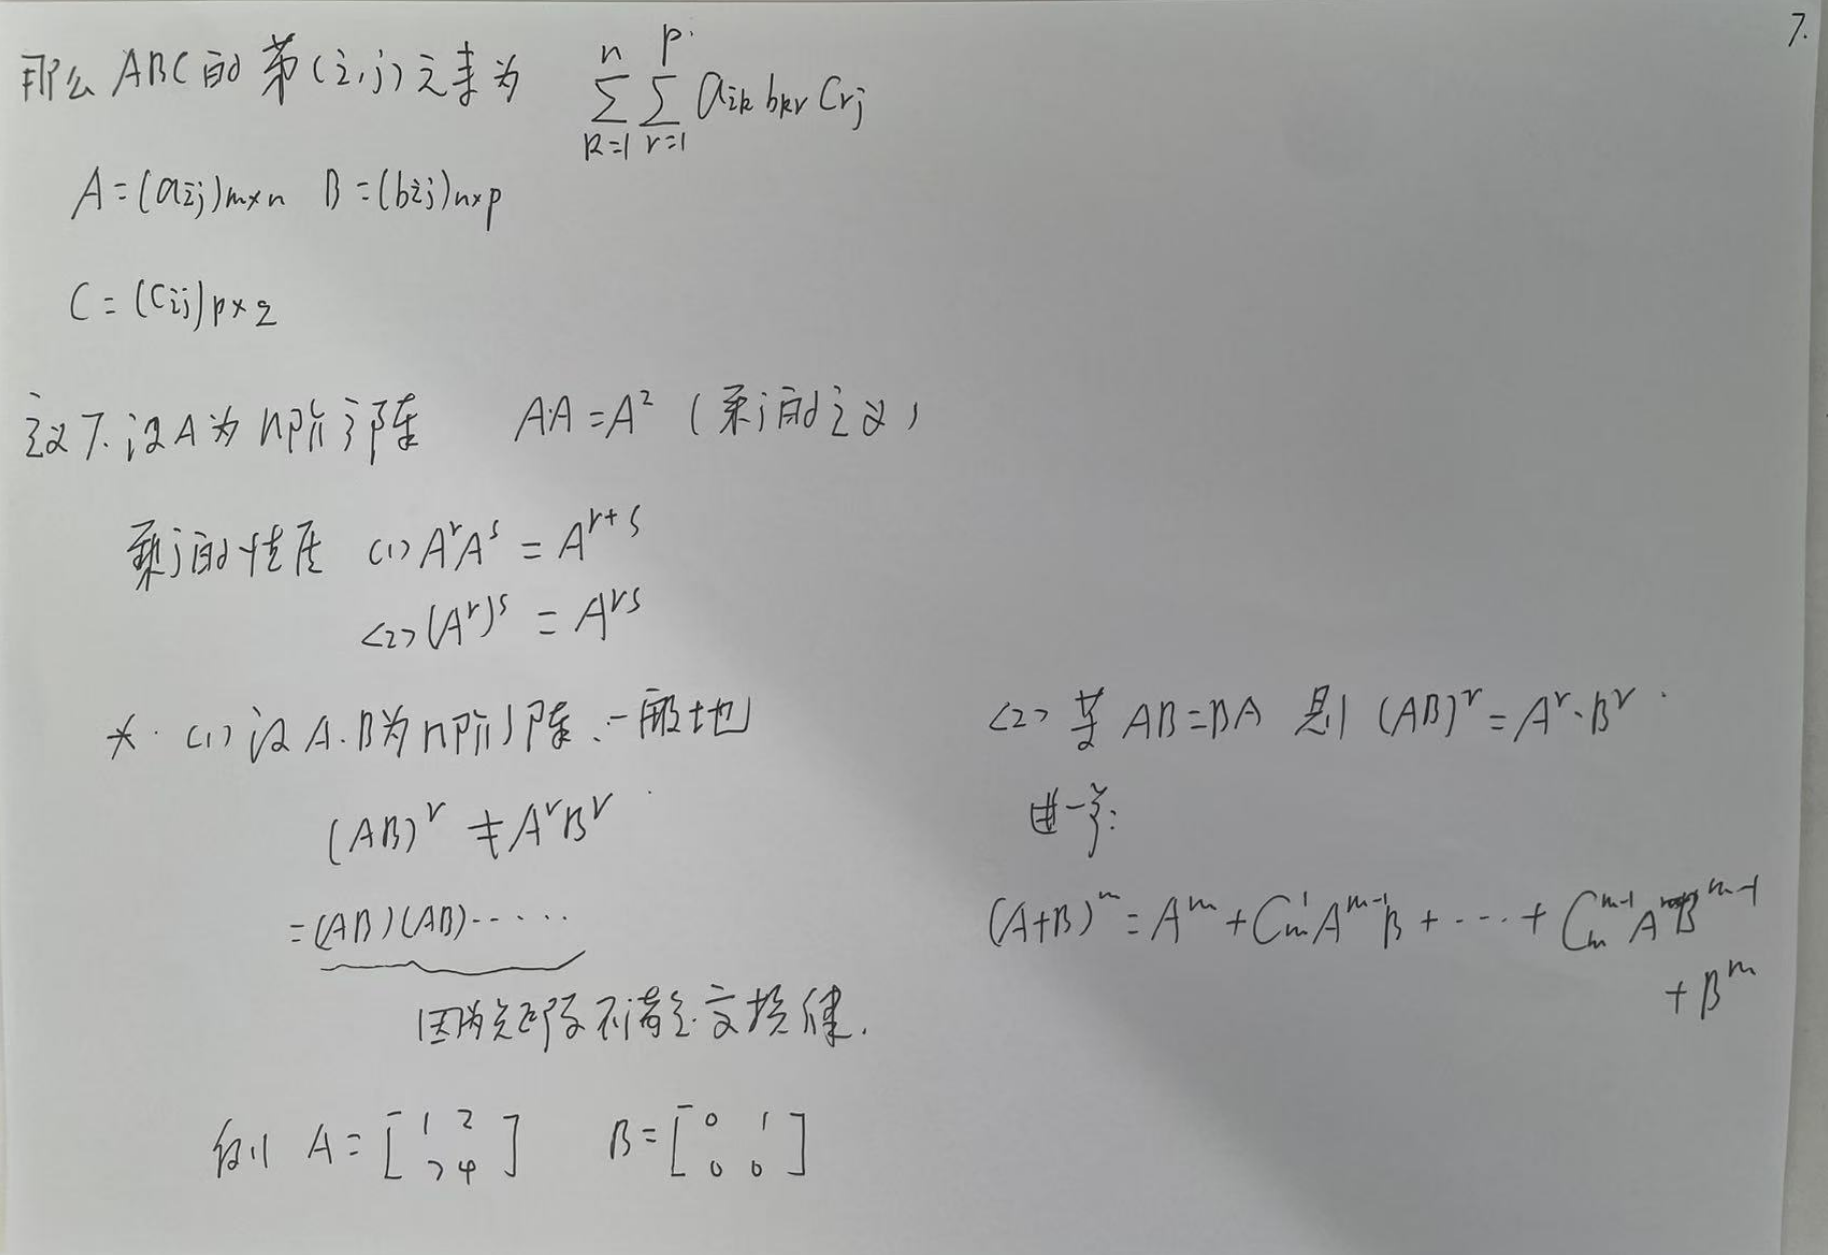 7.
那么 ABC 的 第(i,j)元素为 \sum_{k=1}^{n} \sum_{r=1}^{p} a_{ik} b_{kr} c_{rj}
A=(a_{ij})_{m×n} B=(b_{ij})_{n×p}
C=(c_{ij})_{p×q}
定义7.设A为n阶方阵 AA=A^2 (乘方的定义)
乘方的性质 (1) A^r A^s = A^{r+s}
<2> (A^r)^s = A^{rs}
*. (1) 设A.B为n阶方阵.一般地
(AB)^r ≠ A^r B^r
=(AB)(AB)......
因为矩阵不满足交换律.
例 A=[1 2
4] B=[0 1
0 0]
<2> 若 AB=BA 则 (AB)^r = A^r·B^r.
进一步:
(A+B)^m = A^m + C_m^1 A^{m-1} B + ... + C_m^{m-1} A B^{m-1}
+ B^m